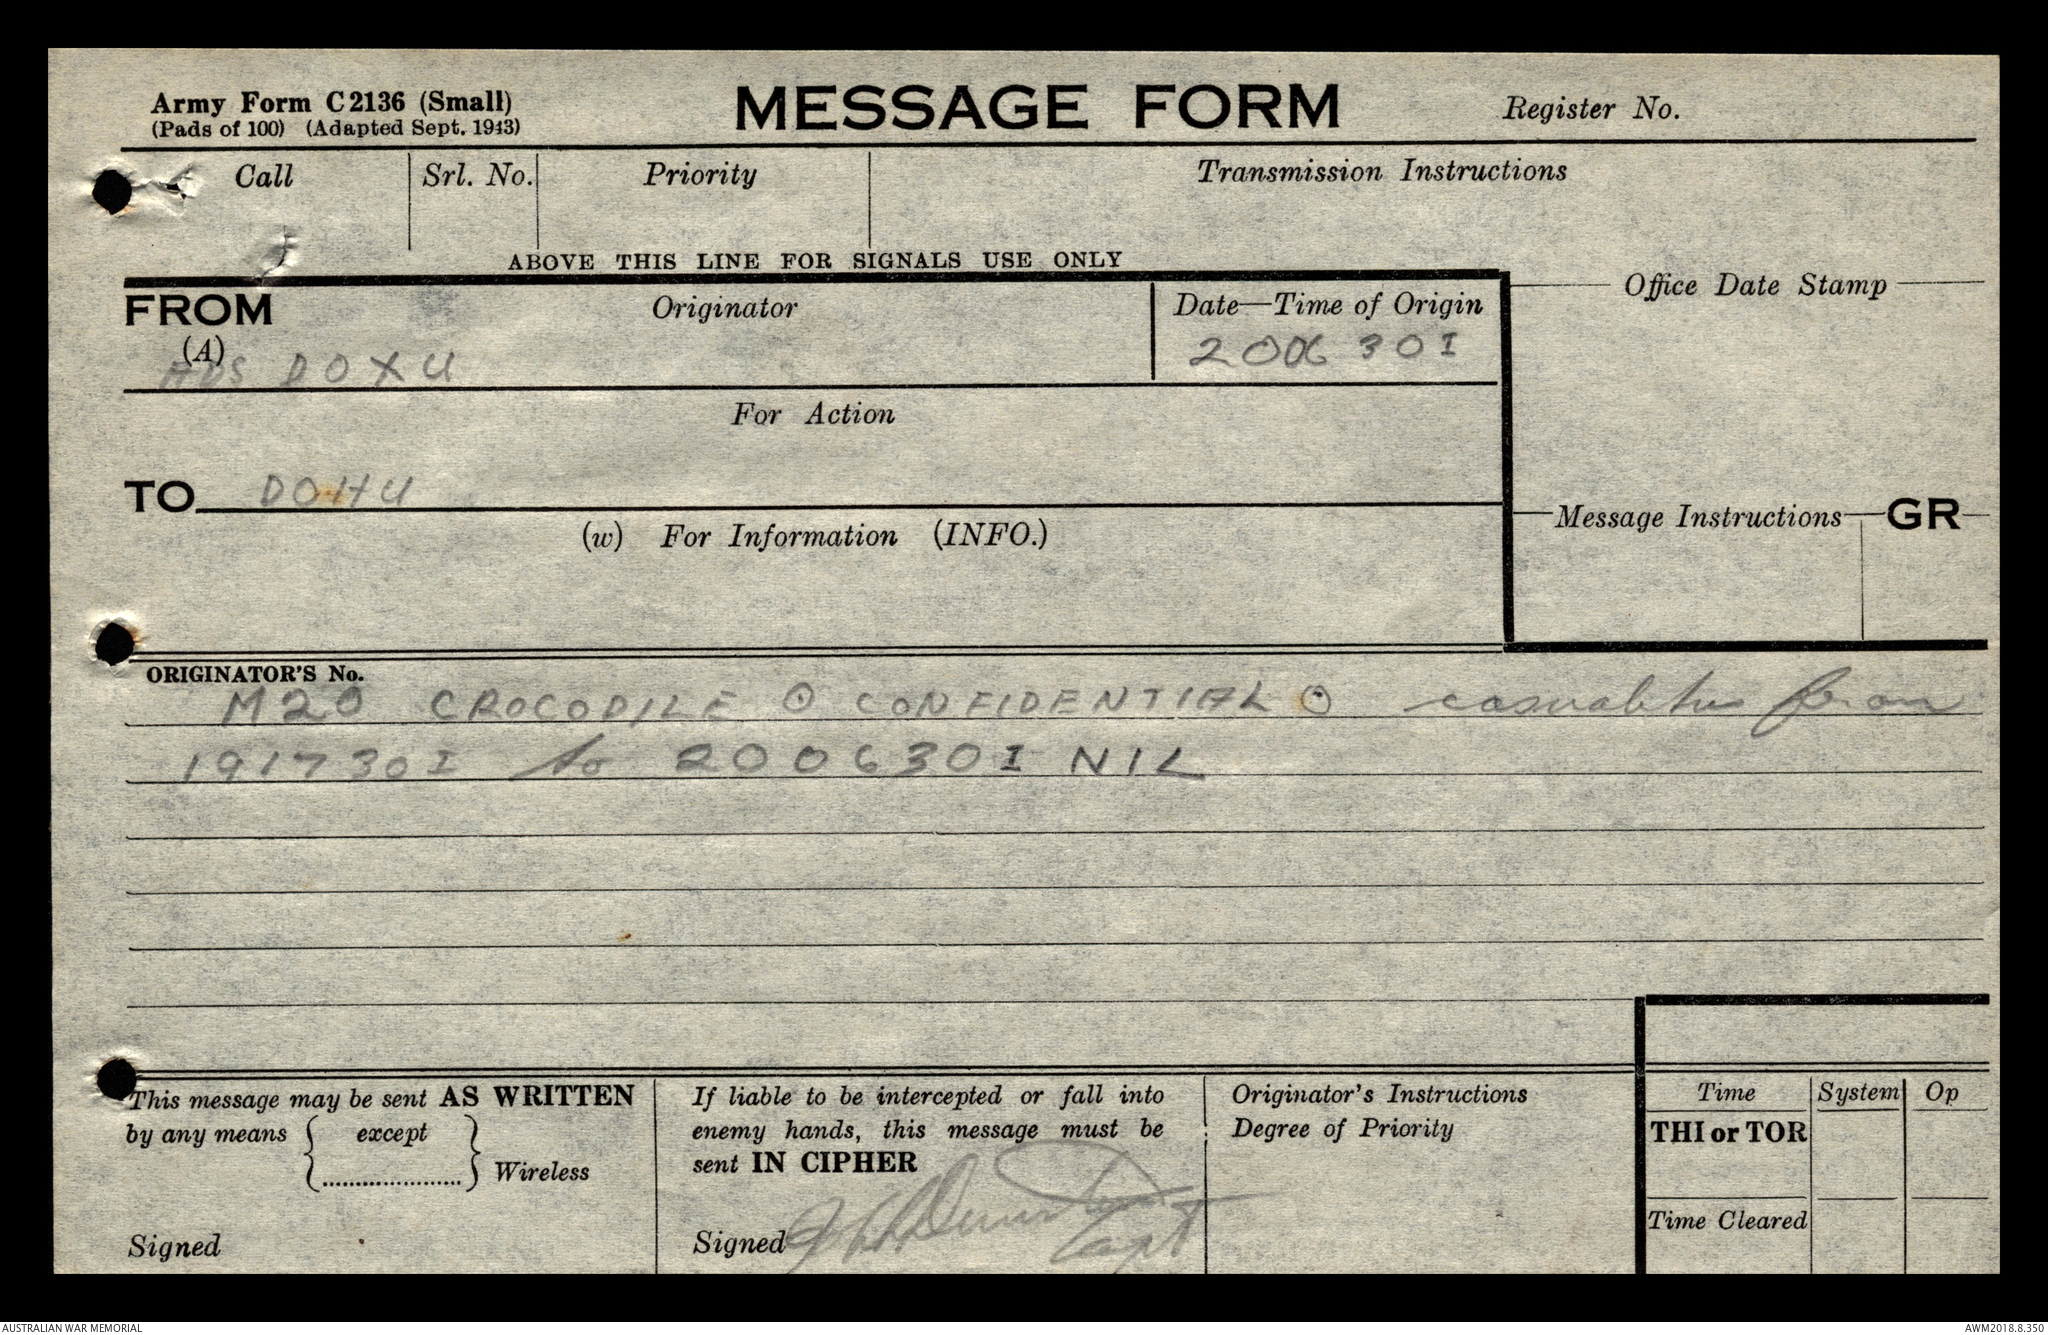 Army Form C2136 (Small)
(Pads of 100) (Adapted Sept. 1943)
MESSAGE FORM
Register No.
Call
Srl. No.
Priority
Transmission Instructions
ABOVE THIS LINE FOR SIGNALS USE ONLY
FROM
(A)
Originator
Date—Time of Origin
Office Date Stamp
ADS DOXU
200630I
For Action
TO DOHU
(w) For Information (INFO.)
Message Instructions GR
ORIGINATOR'S No.
M20 CROCODILE ⊙ CONFIDENTIAL ⊙ casualties from
191730I to 200630I NIL
This message may be sent AS WRITTEN
by any means { except
..................... } Wireless
Signed
If liable to be intercepted or fall into
enemy hands, this message must be
sent IN CIPHER
Signed Capt
Originator's Instructions
Degree of Priority
Time System Op
THI or TOR
Time Cleared
AUSTRALIAN WAR MEMORIAL
AWM2018.8.350